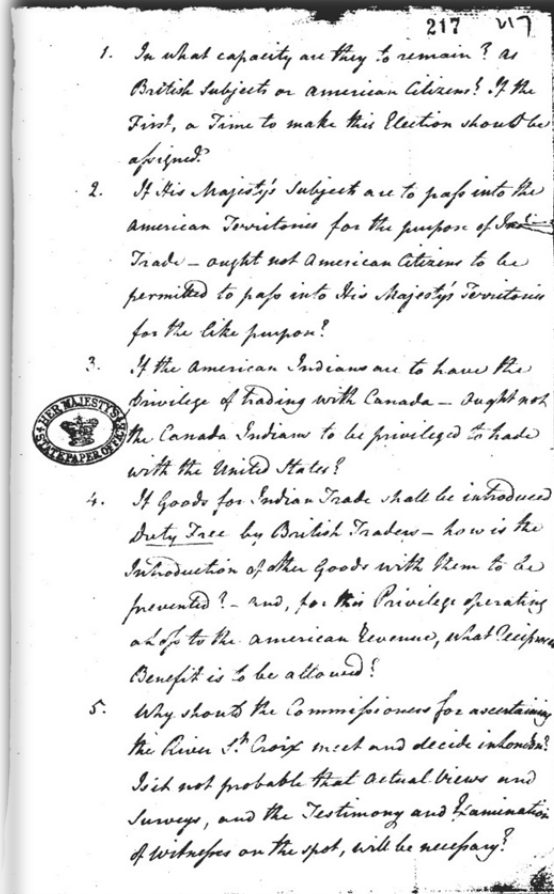 217 217
1. In what capacity are they to remain? as
British Subjects or American Citizens? If the
First, a Time to make this Election should be
assigned?
2. If His Majesty's Subjects are to pass into the
American Territories for the purpose of Indian
Trade — ought not American Citizens to be
permitted to pass into His Majesty's Territories
for the like purpose?
3. If the American Indians are to have the
Privilege of trading with Canada — ought not
the Canada Indians to be privileged to trade
with the United States?
4. If Goods for Indian Trade shall be introduced
Duty Free by British Traders — how is the
Introduction of other Goods with them to be
prevented? — and, for this Privilege operating
a loss to the American Revenue, what reciprocal
Benefit is to be allowed?
5. Why should the Commissioners for ascertaining
the River St. Croix meet and decide in London?
Is it not probable that actual Views and
Surveys, and the Testimony and Examination
of Witnesses on the spot, will be necessary?
HER MAJESTY'S
STATE PAPER OFFICE